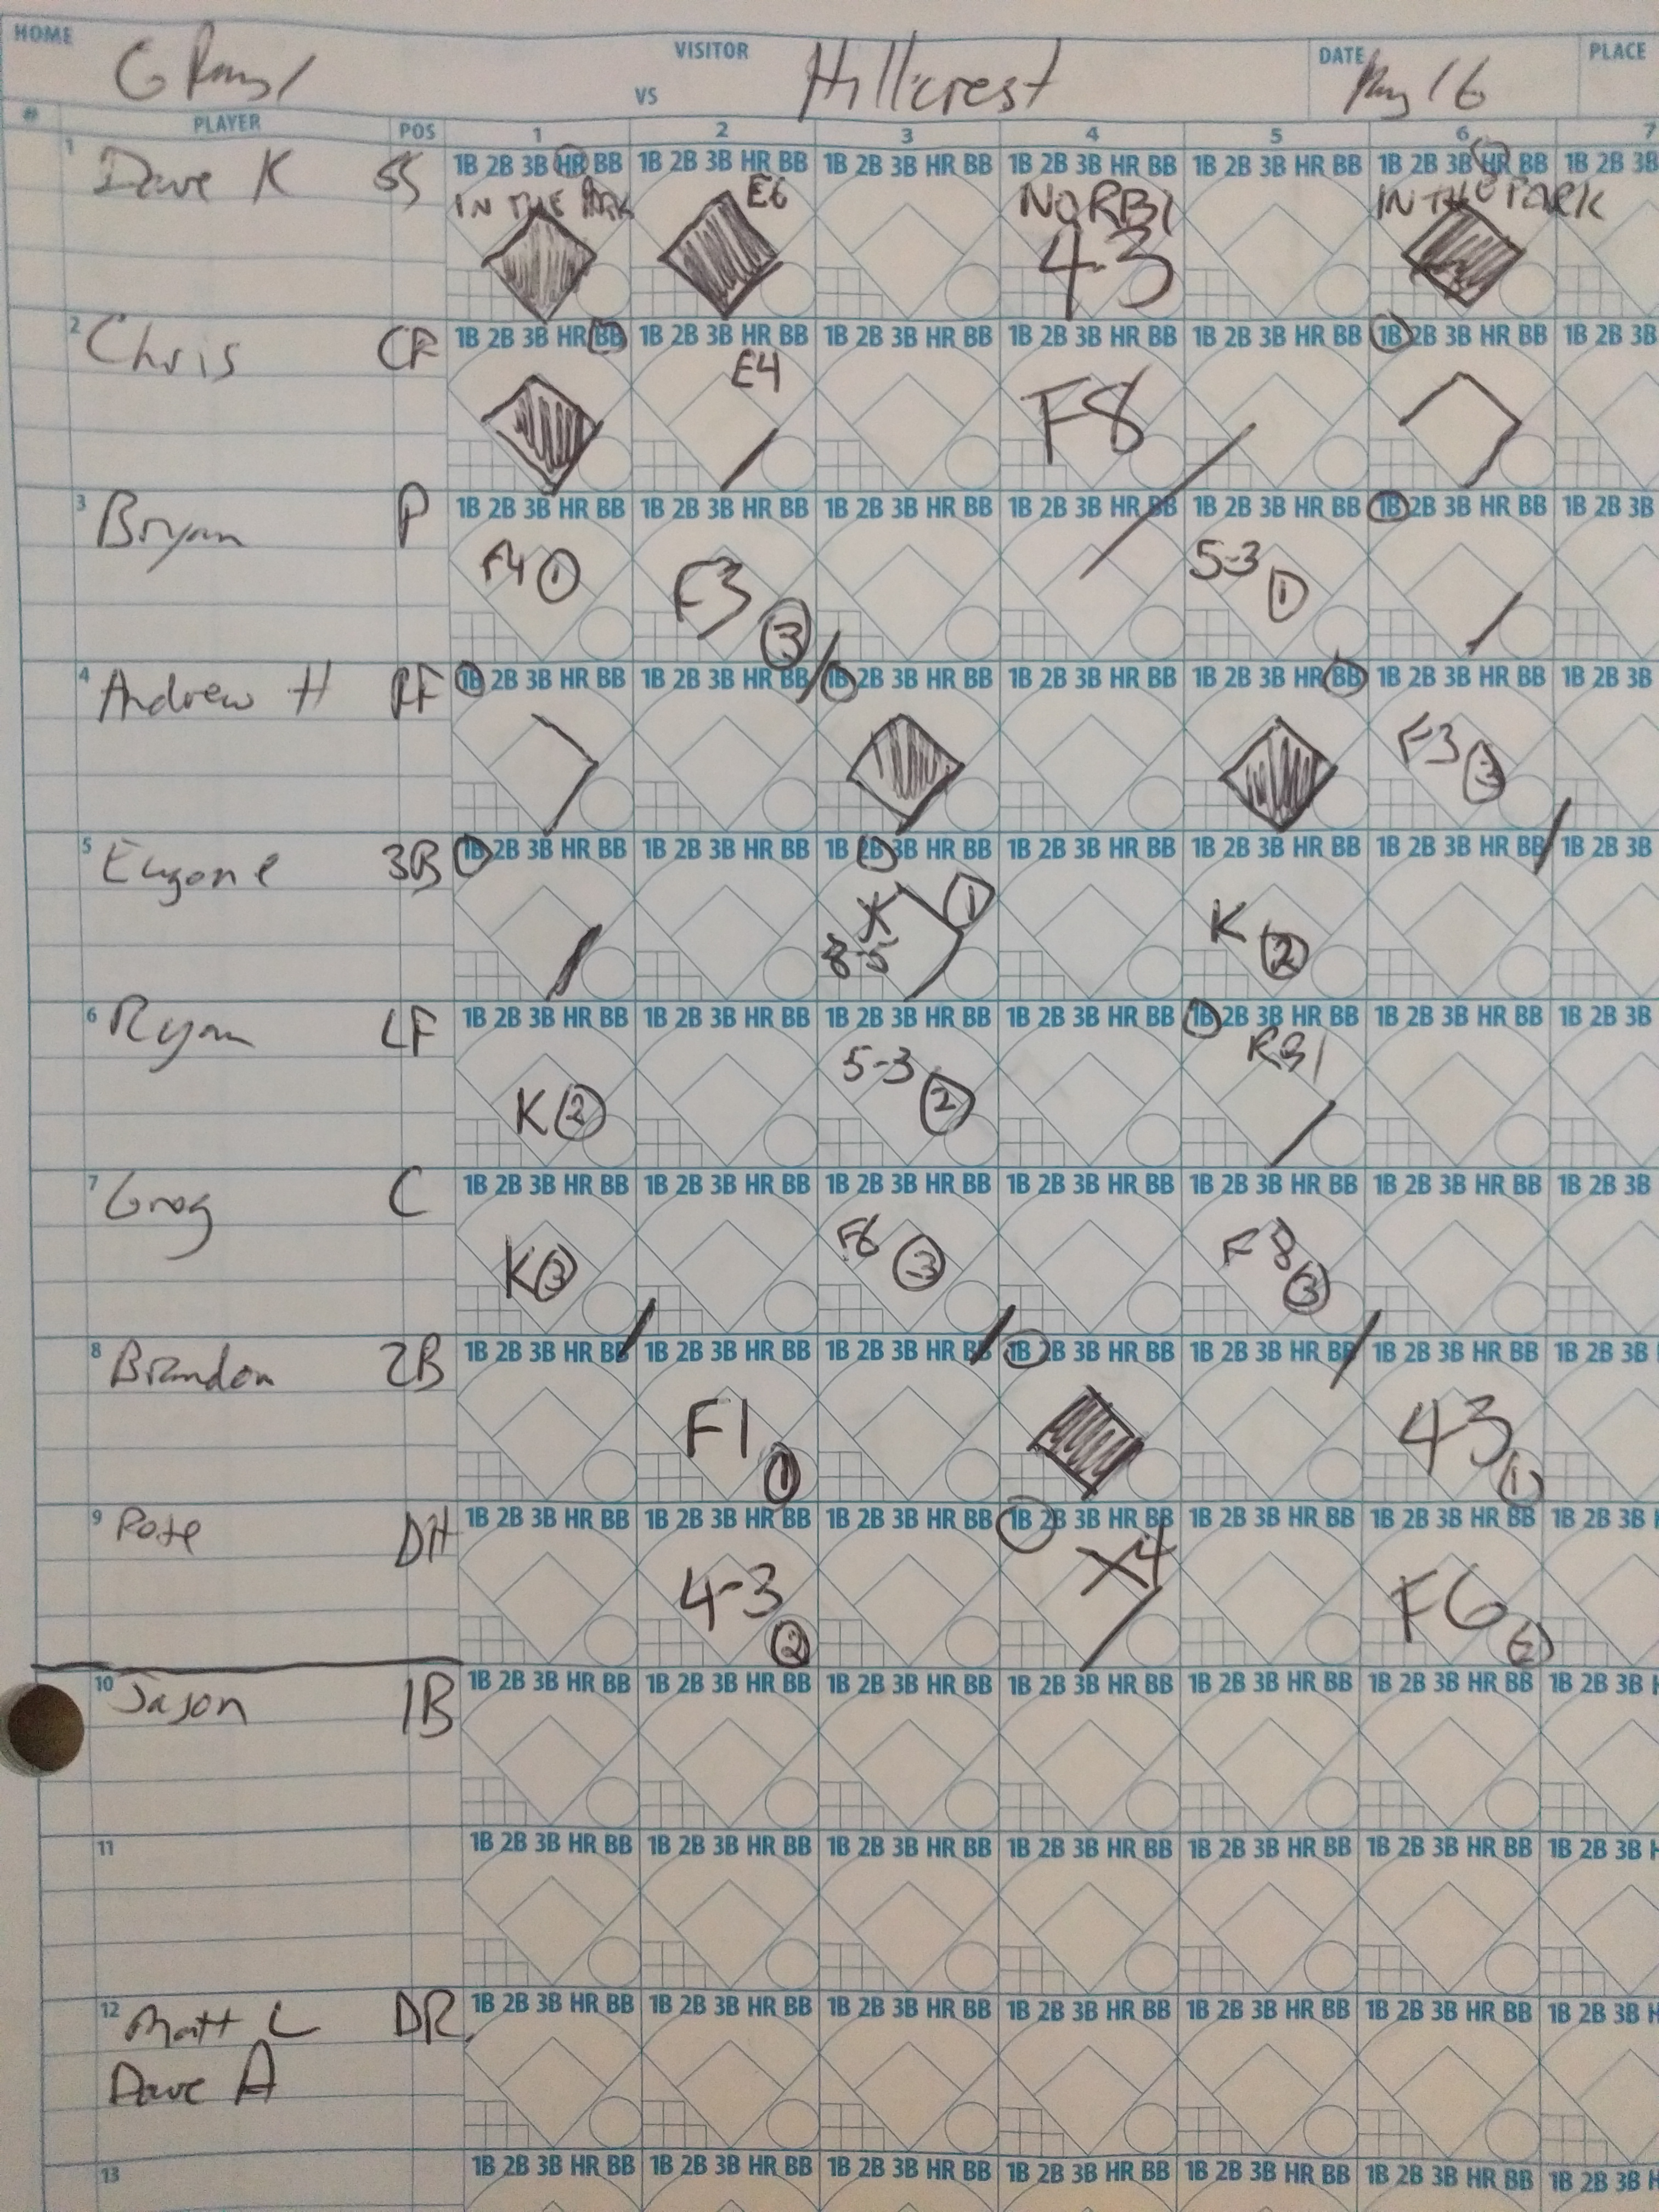 HOME VISITOR DATE PLACE
VS Hillcrest May 16
# PLAYER POS 1 2 3 4 5 6 7
1 Dave K SS 1B 2B 3B HR BB 1B 2B 3B HR BB 1B 2B 3B HR BB 1B 2B 3B HR BB 1B 2B 3B HR BB 1B 2B 3B HR BB 1B 2B 3B
IN THE PARK E6 NO RBI IN THE PARK
4-3
2 Chris CF 1B 2B 3B HR BB 1B 2B 3B HR BB 1B 2B 3B HR BB 1B 2B 3B HR BB 1B 2B 3B HR BB 1B 2B 3B HR BB 1B 2B 3B
E4 F8
3 Bryan P 1B 2B 3B HR BB 1B 2B 3B HR BB 1B 2B 3B HR BB 1B 2B 3B HR BB 1B 2B 3B HR BB 1B 2B 3B HR BB 1B 2B 3B
F4 1 F3 3 5-3 1
4 Andrew H RF 1B 2B 3B HR BB 1B 2B 3B HR BB 1B 2B 3B HR BB 1B 2B 3B HR BB 1B 2B 3B HR BB 1B 2B 3B HR BB 1B 2B 3B
F3 3
5 Eugene 3B 1B 2B 3B HR BB 1B 2B 3B HR BB 1B 2B 3B HR BB 1B 2B 3B HR BB 1B 2B 3B HR BB 1B 2B 3B HR BB 1B 2B 3B
K 1 K 2
8-5
6 Ryan LF 1B 2B 3B HR BB 1B 2B 3B HR BB 1B 2B 3B HR BB 1B 2B 3B HR BB 1B 2B 3B HR BB 1B 2B 3B HR BB 1B 2B 3B
K 2 5-3 2 RBI
7 Greg C 1B 2B 3B HR BB 1B 2B 3B HR BB 1B 2B 3B HR BB 1B 2B 3B HR BB 1B 2B 3B HR BB 1B 2B 3B HR BB 1B 2B 3B
K 3 F6 3 F8 3
8 Brandon 2B 1B 2B 3B HR BB 1B 2B 3B HR BB 1B 2B 3B HR BB 1B 2B 3B HR BB 1B 2B 3B HR BB 1B 2B 3B HR BB 1B 2B 3B
F1 1 43 1
9 Pete DH 1B 2B 3B HR BB 1B 2B 3B HR BB 1B 2B 3B HR BB 1B 2B 3B HR BB 1B 2B 3B HR BB 1B 2B 3B HR BB 1B 2B 3B
4-3 2 X4 F6 2
10 Jason 1B 1B 2B 3B HR BB 1B 2B 3B HR BB 1B 2B 3B HR BB 1B 2B 3B HR BB 1B 2B 3B HR BB 1B 2B 3B HR BB 1B 2B 3B
11 1B 2B 3B HR BB 1B 2B 3B HR BB 1B 2B 3B HR BB 1B 2B 3B HR BB 1B 2B 3B HR BB 1B 2B 3B HR BB 1B 2B 3B
12 Matt L DR 1B 2B 3B HR BB 1B 2B 3B HR BB 1B 2B 3B HR BB 1B 2B 3B HR BB 1B 2B 3B HR BB 1B 2B 3B HR BB 1B 2B 3B
Dave A
13 1B 2B 3B HR BB 1B 2B 3B HR BB 1B 2B 3B HR BB 1B 2B 3B HR BB 1B 2B 3B HR BB 1B 2B 3B HR BB 1B 2B 3B